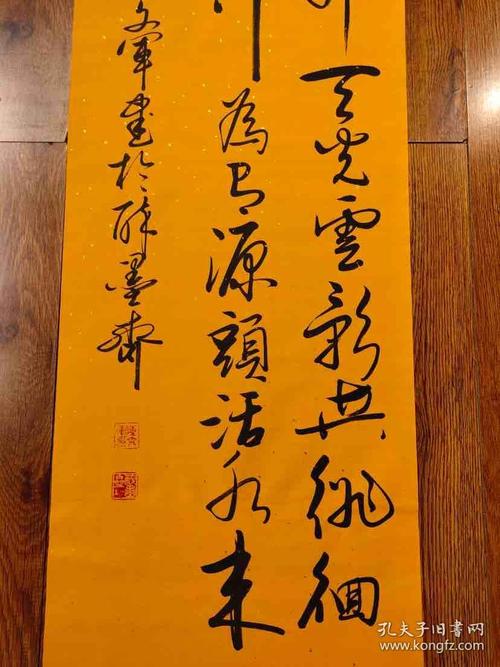 天光雲影共徘徊
為有源頭活水来
文軍書於醉墨齋
孔夫子旧书网
www.kongfz.com